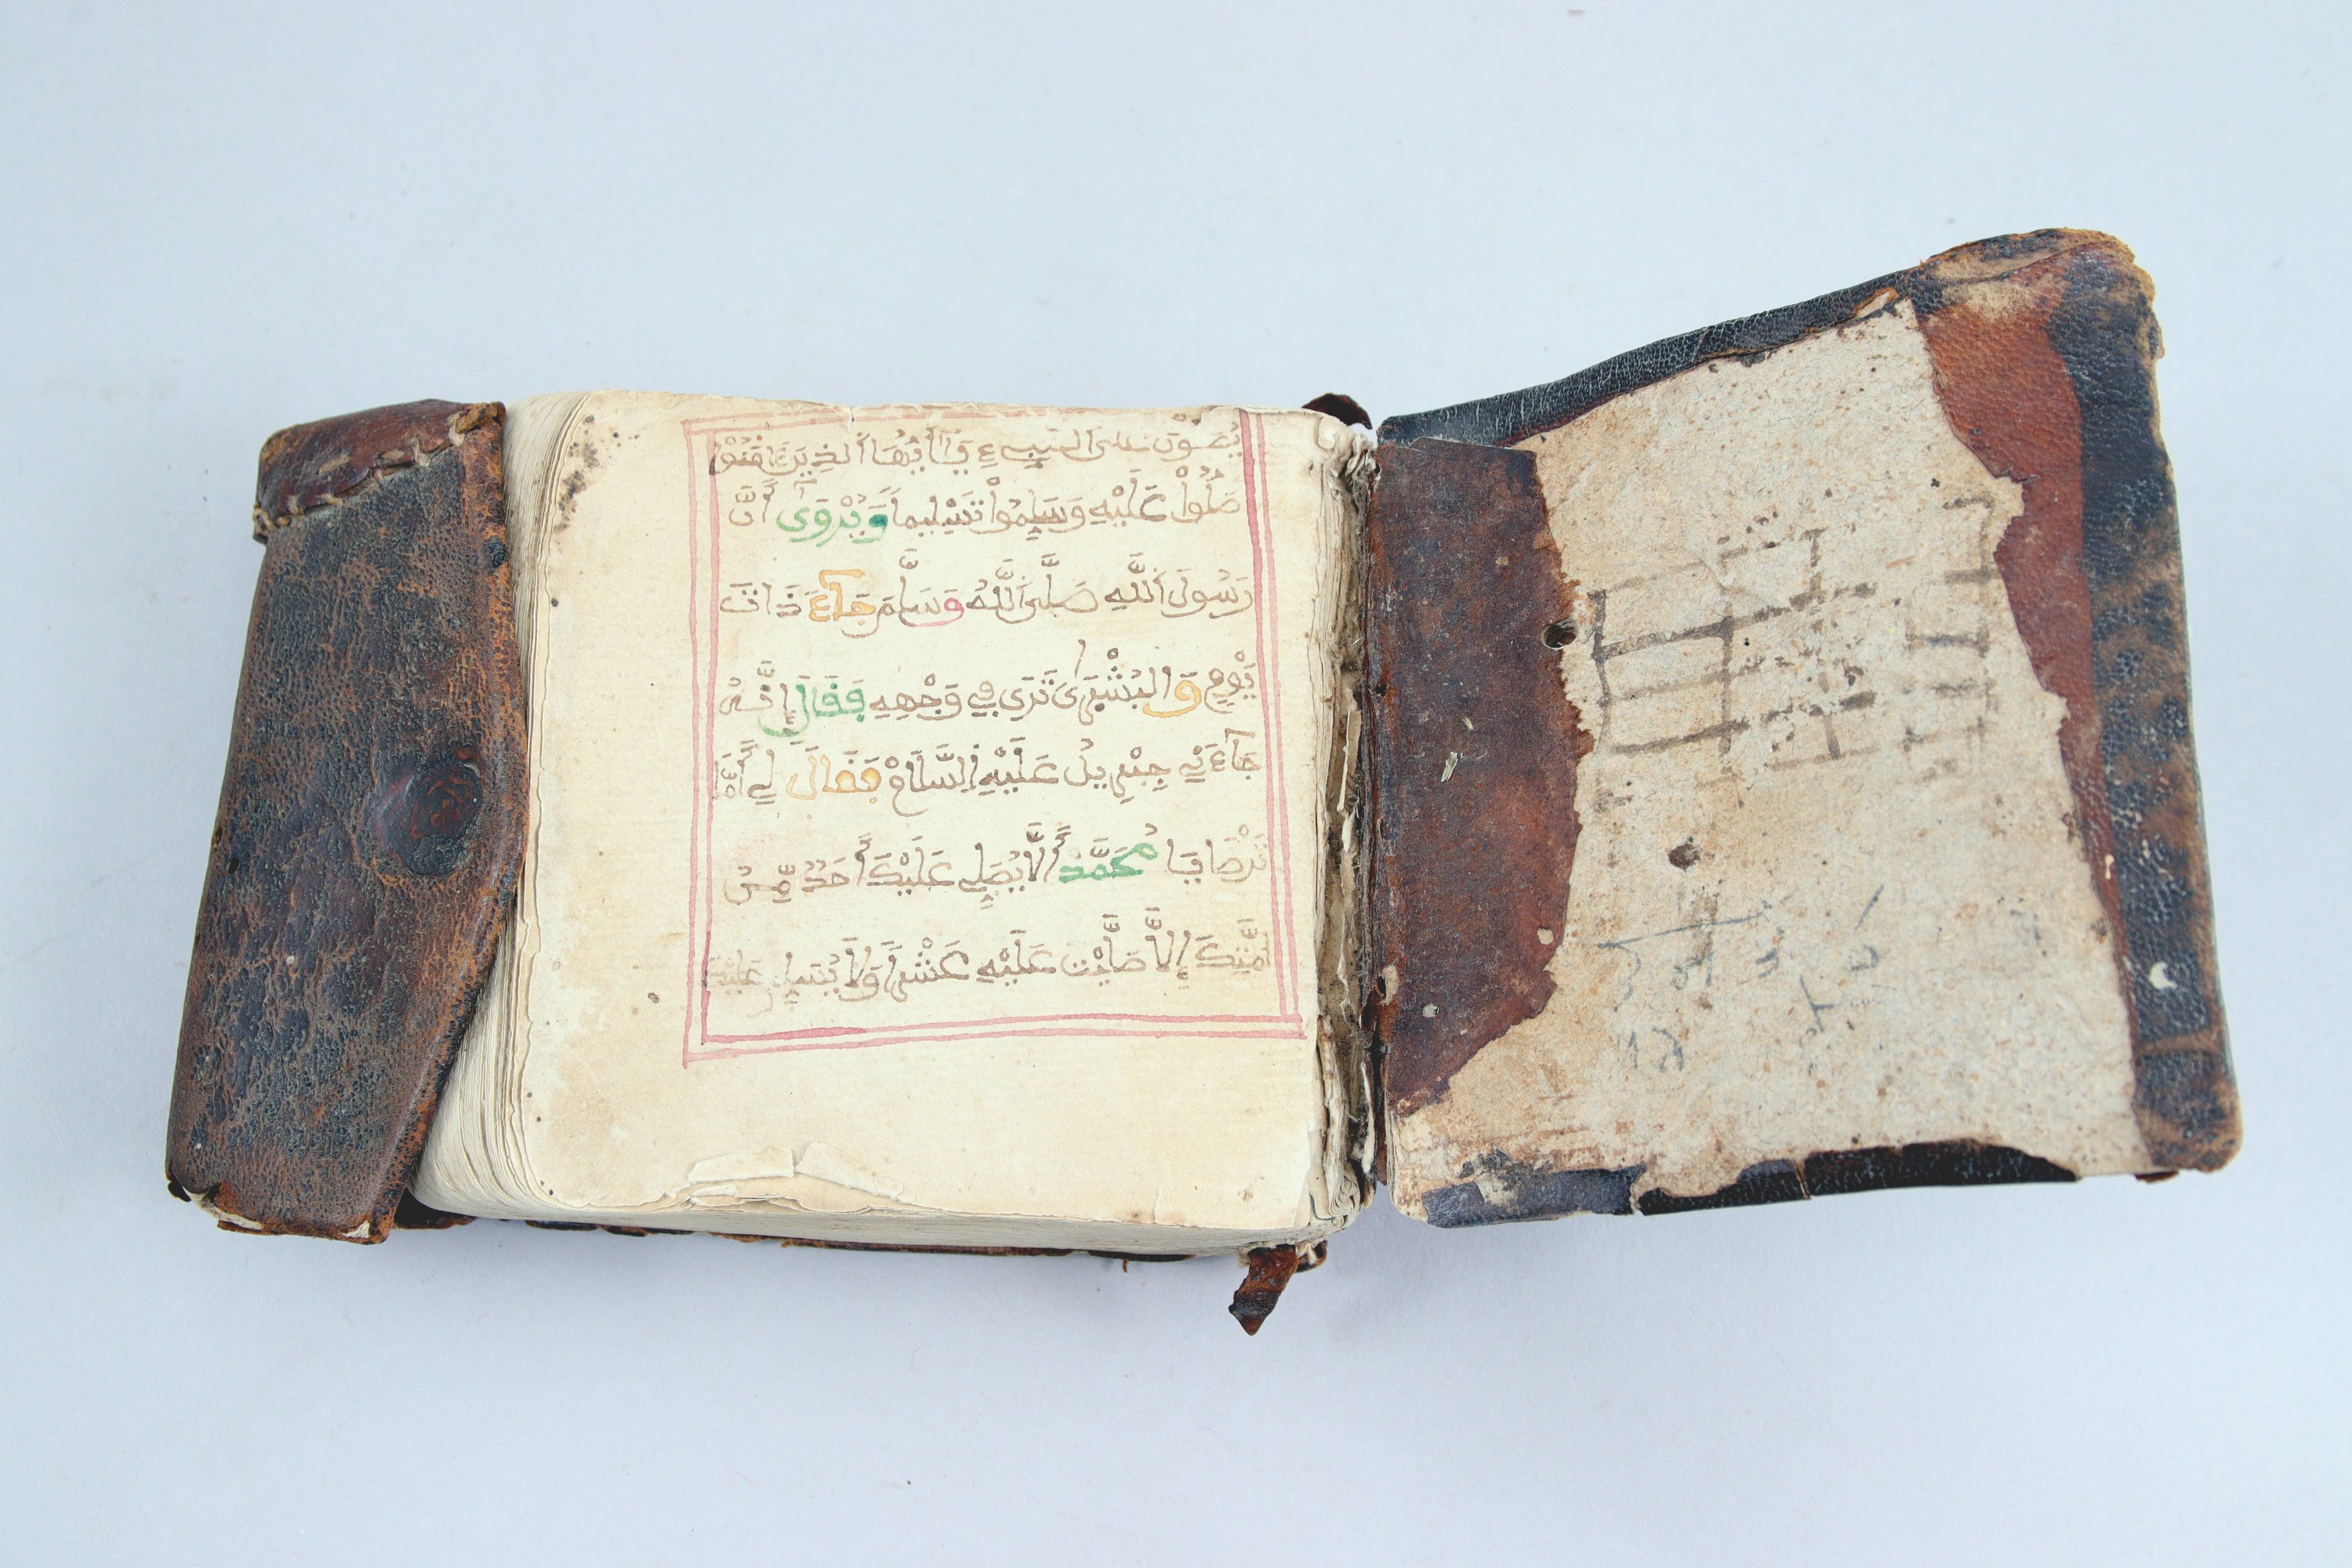 يُصَلُّونَ عَلَى النَّبِيءِ يَٰٓأَيُّهَا الَّذِينَ ءَامَنُوا
صَلُّوا عَلَيْهِ وَسَلِّمُوا تَسْلِيماً وَيُرْوَى أَنَّ
رَسُولَ اللَّهِ صَلَّى اللَّهُ وَسَلَّمَ جَآءَ ذَاتَ
يَوْمٍ وَالْبُشْرَى تُرَى فِي وَجْهِهِ فَقَالَ إِنَّهُ
جَآءَنِي جِبْرِيلُ عَلَيْهِ السَّلَامُ فَقَالَ لِي أَمَا
تَرْضَا يَا مُحَمَّدُ أَلَّا يُصَلِّي عَلَيْكَ أَحَدٌ مِّنْ
أُمَّتِكَ إِلَّا صَلَّيْتُ عَلَيْهِ عَشْراً وَلَا يُسَلِّمُ عَلَيْكَ